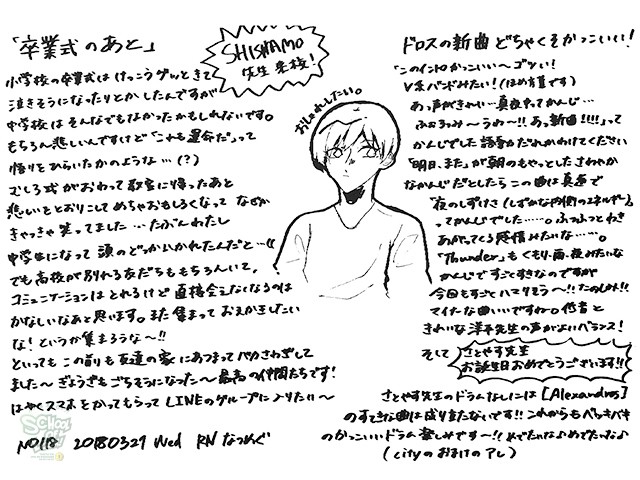 「卒業式のあと」
小学校の卒業式は けっこうグッときて
泣きそうになったりとかしたんですが
中学校は そんなでもなかったかもしれないです。
もちろん悲しいんですけど「これも運命だ」って
悟りをひらいたかのような…(?)
むしろ式がおわって教室に帰ったあと
悲しいをとおりこしてめちゃおもしろくなって なぜか
きゃっきゃ笑ってました…たぶんわたし
中学生になって 頭のどっかいかれたんだと…!!
でも高校が別れる友だちももちろんいて、
コミュニケーションはとれるけど 直接会えなくなるのは
かなしいなあと思います。また集まっておえかきしたい
な!というか集まろうな〜!!
といっても この前も友達の家にあつまってバカさわぎして
ました〜ぎょうざもごちそうになった〜最高の仲間たちです!
はやくスマホをかってもらってLINEのグループに入りたい〜
NO118 20180321 Wed RN なつめぐ
SHISHAMO
先生 来校!
おしゃれしたい。
ドロスの新曲 どちゃくそかっこいい!
「このイントロかっこいい〜ゴツい!
V系バンドみたい!(ほめ言葉です)
あっ声がきれい…真夜中ってかんじ…
ふぉろみ〜うわ〜!!あっ新曲!!!!」って
かんじでした 語彙力だれかわけてください
「明日、また」が朝のもやっとしたさわやか
なかんじだとしたら この曲は真夜中で
「夜のしずけさ(しずかな内側のエネルギー)」
ってかんじでした……。ふつふつとわき
あがってくる感情みたいな……。
「Thunder」も くもり・雨・夜みたいな
かんじで すごくすきなのですが
今回もすごくハマりそう〜!!たのしみ!!
マイナーな曲いいですね〜。低音と
きれいな洋平先生の声がよいバランス!
そして さとやす先生
お誕生日おめでとうございます!!
さとやす先生のドラムなしには [Alexandros]
のすてきな曲は成りたたないです!! これからもバッキバキ
のかっこいいドラム楽しみです〜!! めでたいな♪めでたいな♪
(cityのおまけのアレ)
SCHOOL OF LOCK!